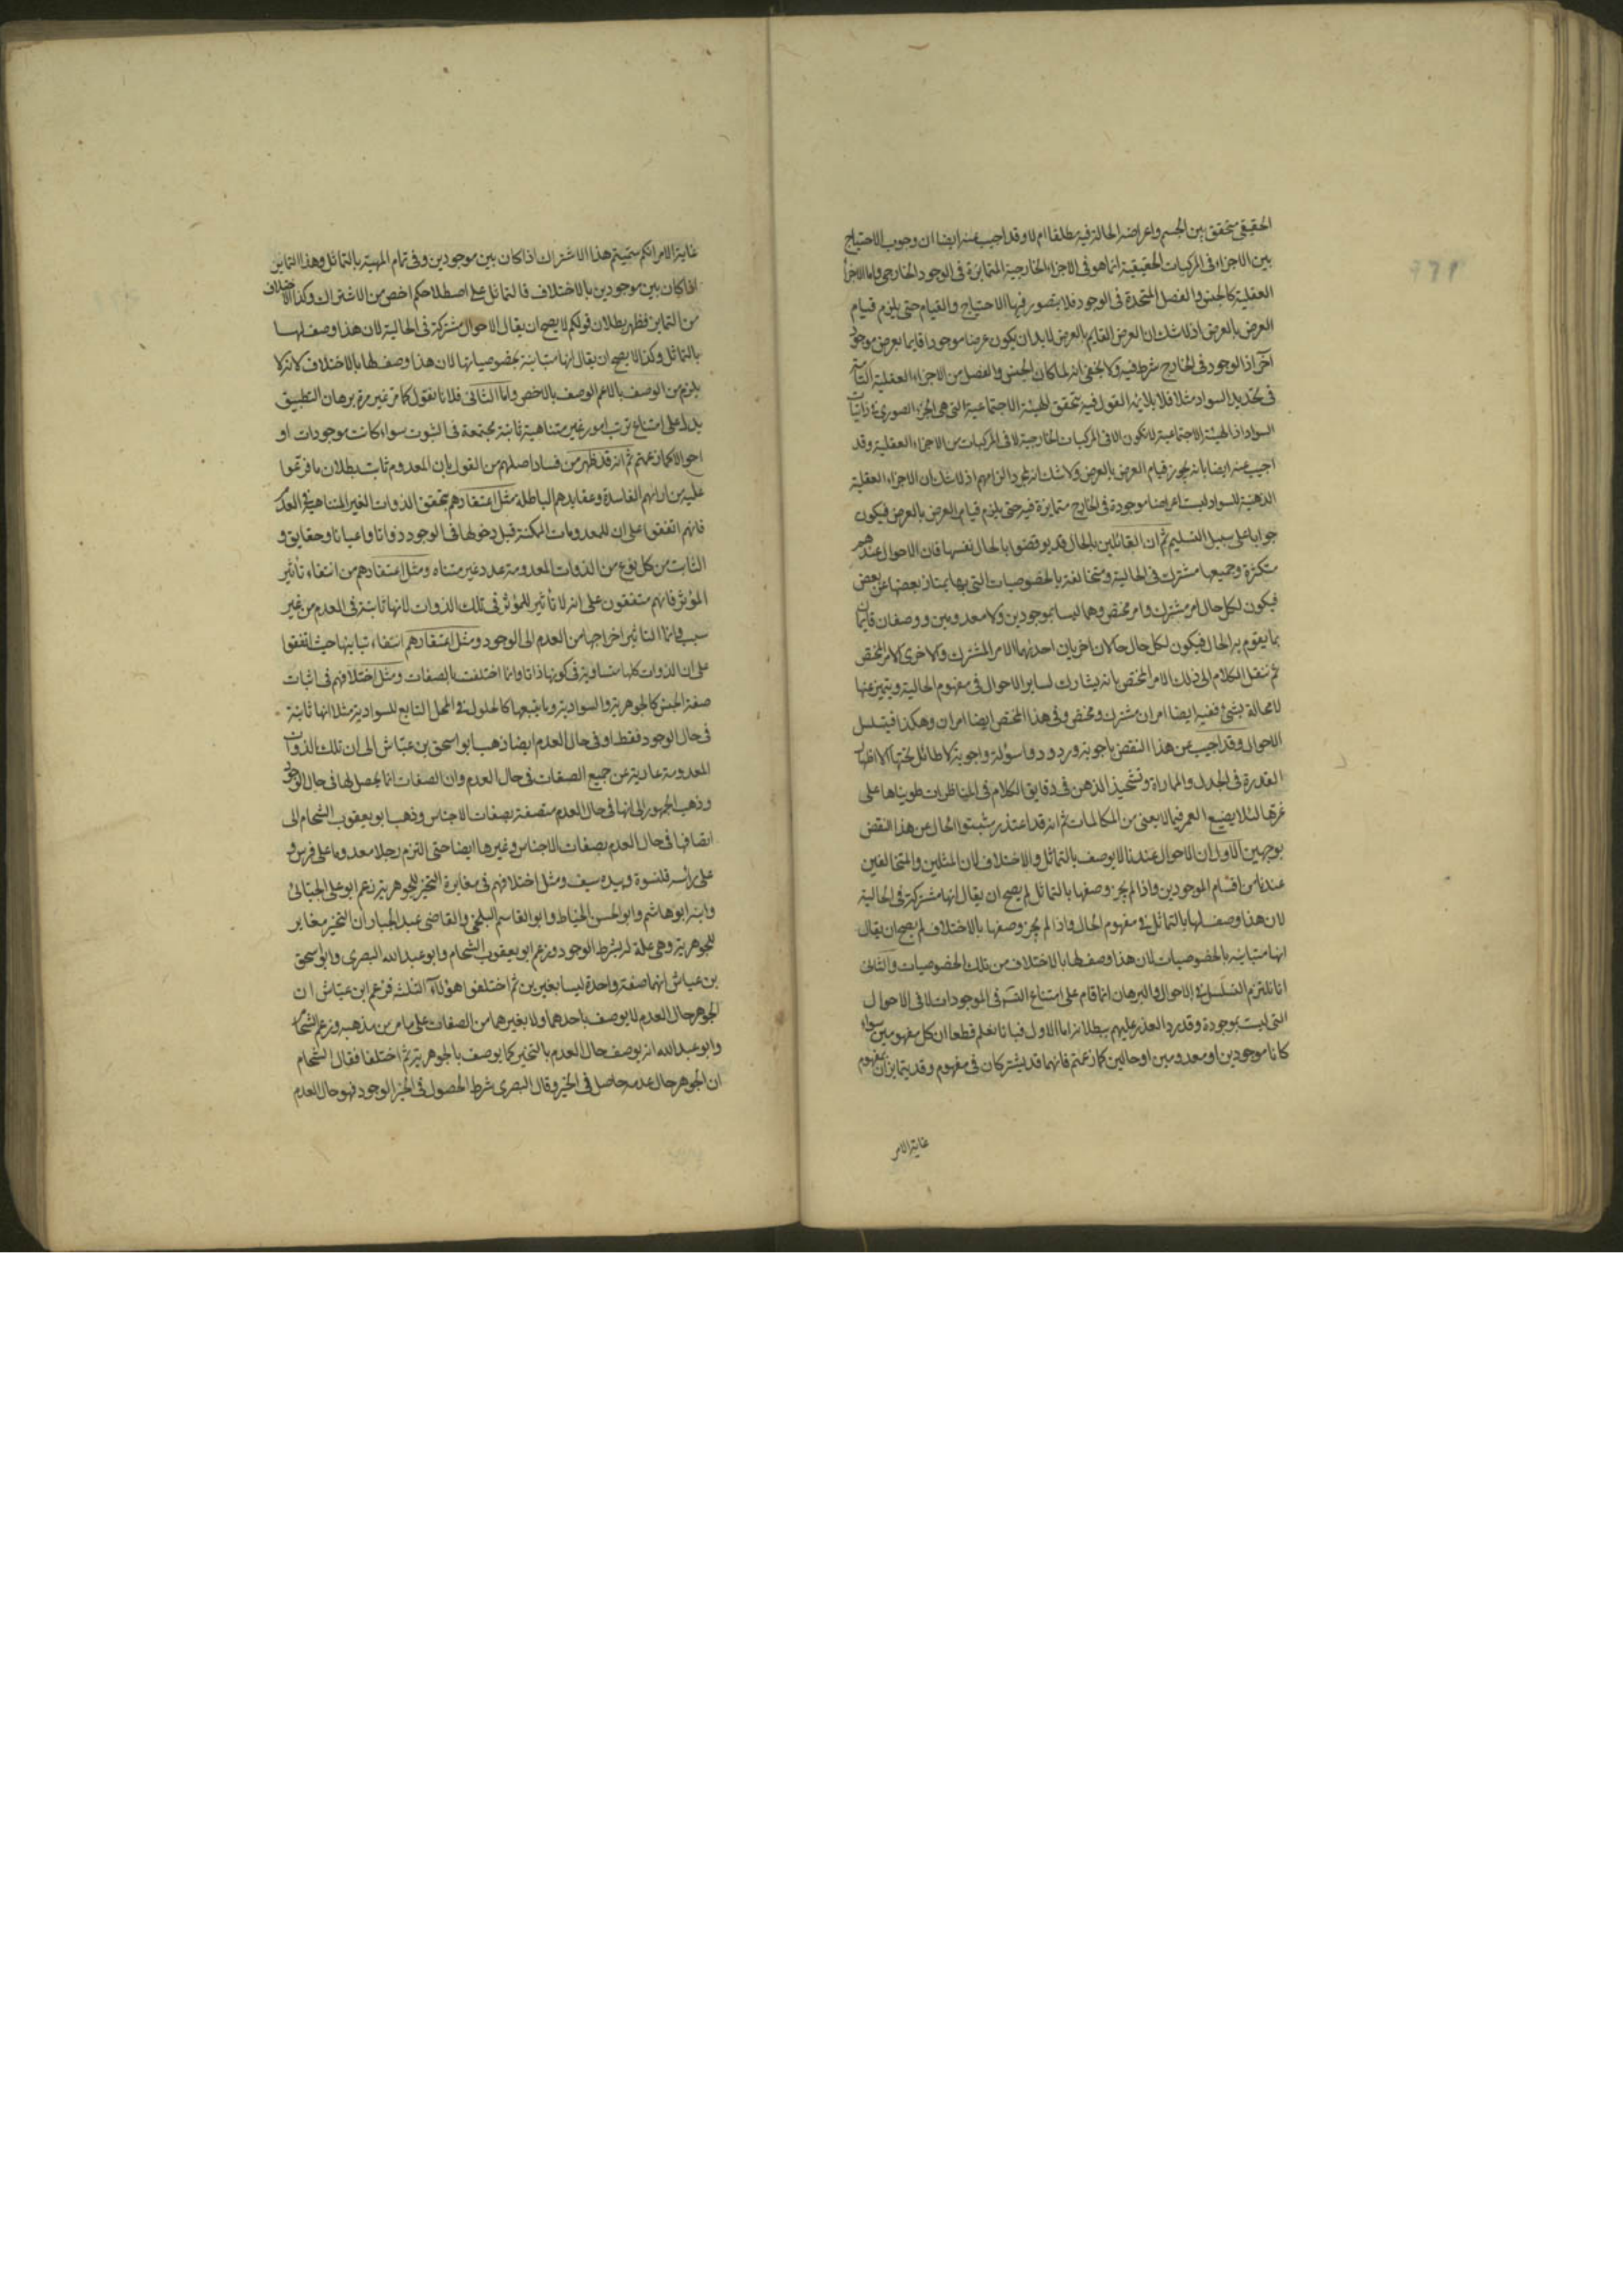 الحقيقى متحقق بين الجسم واعراضه الحالة فيه مطلقا ام لا وقد اجيب عنه ايضا ان وجوب الاحتياج
بين الاجزاء فى المركبات الحقيقية انما هو فى الاجزاء الخارجية المتمايزة فى الوجود الخارجى واما الاجزاء
العقلية كالجنس والفصل المتحدة فى الوجود فلا يتصور فيها الاحتياج والقيام حتى يلزم قيام
العرض بالعرض اذ لا شك ان العرض القايم بالعرض لا بد ان يكون عرضا موجودا قايما بعرض موجود
آخر اذ الوجود فى الخارج شرط فيه ولا يخفى انه لما كان الجنس والفصل من الاجزاء العقلية
فى تحديد السواد مثلا فلا القول فيه بتحقق الهيئة الاجتماعية التى هى الجزء الصورى
السواد اذ الهيئة الاجتماعية لا تكون الا فى المركبات الخارجية لا فى المركبات من الاجزاء العقلية وقد
اجيب عنه ايضا بانه يجوز قيام العرض بالعرض ولا شك انه مجرد الزامهم اذ لا شك ان الاجزاء العقلية
الذهنية للسواد ليست اعراضا موجودة فى الخارج متمايزة فيه حتى يلزم قيام العرض بالعرض فيكون
جوابا على سبيل التسليم ثم ان القائلين بالحال قد نوقضوا بالحال نفسها فان الاحوال عندهم
متكثرة وجميعها مشترك فى الحالية ومتخالفة بالخصوصيات التى بها يمتاز بعضها عن بعض
فيكون لكل حال امر مشترك وامر مختص وهما ليسا بموجودين ولا معدومين ووصفان قايمان
بما يقوم به الحال فيكون لكل حال حالان اخريان احديهما الامر المشترك والاخرى الامر المختص
ثم ننقل الكلام الى ذلك الامر المختص بانه يشارك لساير الاحوال فى مفهوم الحالية ويتميز عنها
لا محالة بشئ ففيه ايضا امران مشترك ومختص وفى هذا المختص ايضا امران وهكذا فيتسلسل
الاحوال وقد اجيب عن هذا النقض باجوبة وردود واسولة واجوبة لا طائل تحتها الا اظهار
القدرة فى الجدل والمماراة وتشحيذ الذهن فى دقايق الكلام فى المناظرات طويناها على
غرتها لئلا يضيع العمر فيما لا يعنى من المكالمات ثم انه قد اعتذر مثبتوا الحال عن هذا النقض
بوجهين الاول ان الاحوال عندنا لا يوصف بالتماثل والاختلاف لان المثلين والمتخالفين
عندنا من اقسام الموجودين واذا لم يجز وصفها بالتماثل لم يصح ان يقال انها مشتركة فى الحالية
لان هذا وصف لها بالتماثل فى مفهوم الحال واذا لم يجز وصفها بالاختلاف لم يصح ان يقال
انها متباينة بالخصوصيات لان هذا وصف لها بالاختلاف من تلك الخصوصيات والثانى
انا نلتزم التسلسل فى الاحوال والبرهان انما قام على امتناع التسـ فى الموجودات لا فى الاحوال
التى ليست بموجودة وقد رد العذر عليهم ببطلانه اما الاول فبانا نعلم قطعا ان كل مفهومين سواء
كانا موجودين او معدومين او حالين كما زعمتم فانهما قد يشتركان فى مفهوم وقد يتمايزان بمفهوم
غاية الامر
غاية الامر انكم سميتم هذا الاشتراك اذا كان بين موجودين وفى تمام المهية بالتماثل وهذا التمايز
اذا كان بين موجودين بالاختلاف فالتماثل على اصطلاحكم اخص من الاشتراك وكذا الاختلاف
من التمايز فظهر بطلان قولكم لا يصح ان يقال الاحوال مشتركة فى الحالية لان هذا وصف لها
بالتماثل وكذا لا يصح ان يقال انها متباينة بخصوصياتها لان هذا وصف لها بالاختلاف لانه لا
يلزم من الوصف بالاعم الوصف بالاخص واما الثانى فلانا نقول كما مر غير مرة برهان التطبيق
يدل على امتناع ترتب امور غير متناهية ثابتة مجتمعة فى الثبوت سواء كانت موجودات او
احوالا كما زعمتم ثم انه قد ظهر من فساد اصلهم من القول بان المعدوم ثابت بطلان ما فرعوا
عليه من ارائهم الفاسدة وعقايدهم الباطلة مثل اعتقادهم تحقق الذوات الغير المتناهية فى العدم
فانهم اتفقوا على ان للمعدومات الممكنة قبل دخولها فى الوجود ذواتا واعيانا وحقايق و
الثابت من كل نوع من الذوات المعدومة عدد غير متناه ومثل اعتقادهم من انتفاء تأثير
المؤثر فانهم متفقون على انه لا تأثير للمؤثر فى تلك الذوات لانها ثابتة فى العدم من غير
سبب وانما التاثير اخراجها من العدم الى الوجود ومثل اعتقادهم انتفاء تباينها حيث اتفقوا
على ان الذوات كلها متساوية فى كونها ذاتا وانما اختلفت بالصفات ومثل اختلافهم فى اثبات
صفة الجنس كالجوهرية والسوادية وما يتبعها كالحلول فى المحل التابع للسوادية مثلا انها ثابتة
فى حال الوجود فقط او فى حال العدم ايضا ذهب ابو اسحق بن عياش الى ان تلك الذوات
المعدومة عارية عن جميع الصفات فى حال العدم وان الصفات انما يحصل لها فى حال الوجود
وذهب الجمهور الى انها فى حال العدم متصفة بصفات الاجناس وذهب ابو يعقوب الشحام الى
اتصافها فى حال العدم بصفات الاجناس وغيرها ايضا حتى التزم رجلا معدوما على فرس و
على رأسه قلنسوة وبيده سيف ومثل اختلافهم فى مغايرة التحيز للجوهرية زعم ابو على الجبائى
وابنه ابو هاشم وابو الحسن الخياط وابو القاسم البلخى والقاضى عبد الجبار ان التحيز مغاير
للجوهرية وهى علة له بشرط الوجود وزعم ابو يعقوب الشحام وابو عبد الله البصرى وابو اسحق
بن عياش انهما صفة واحدة ليسا بغيرين ثم اختلفوا هؤلاء الثلثة فزعم ابن عياش ان
الجوهر حال العدم لا يوصف باحدهما ولا بغيرهما من الصفات على ما مر من مذهبه وزعم الشحام
وابو عبد الله انه يوصف حال العدم بالتحيز كما يوصف بالجوهرية ثم اختلفا فقال الشحام
ان الجوهر حال عدمه حاصل فى الحيز وقال البصرى شرط الحصول فى الحيز الوجود فهو حال العدم